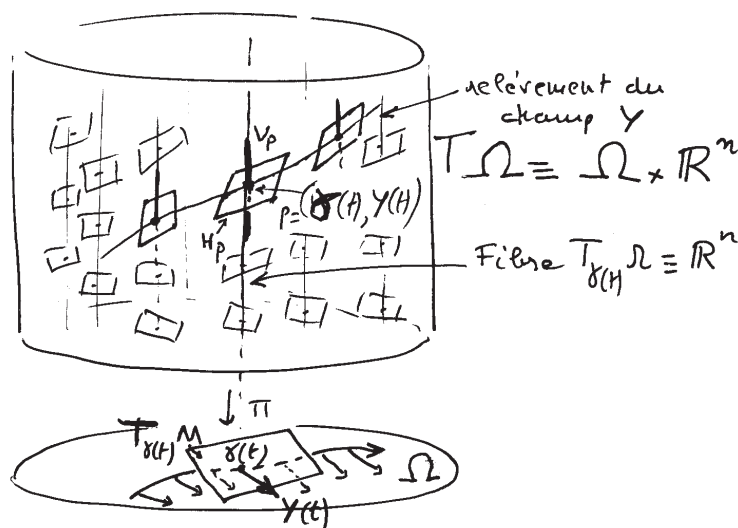 relèvement du
champ Y
TΩ ≡ Ω × ℝⁿ
V_p
p=(γ(t), Y(t))
H_p
Fibre T_γ(t) Ω ≡ ℝⁿ
π
T_γ(t) M
γ(t)
Ω
Y(t)